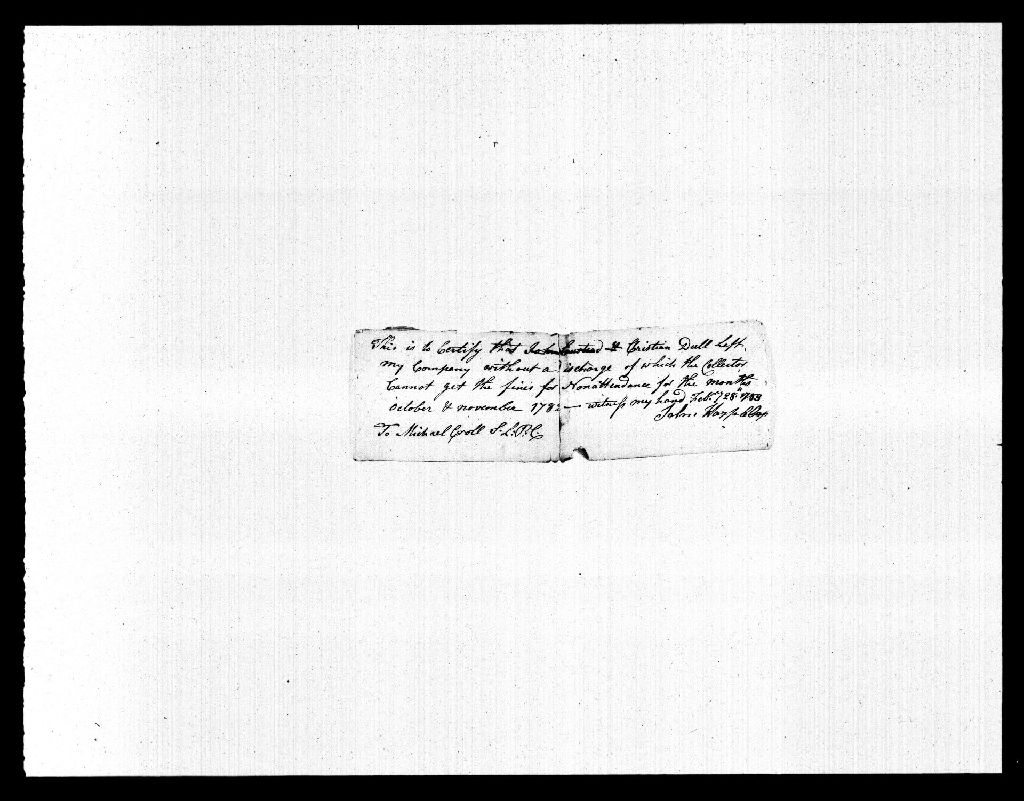 This is to Certify that & Christian Dull Left
my Company without a discharge of which the Collector
Cannot get the fines for Nonattendance for the months
October & november 1782 — witness my hand Feb.y 28th 1783
John Hays Cap
To Michael Croll S. L. P. C.